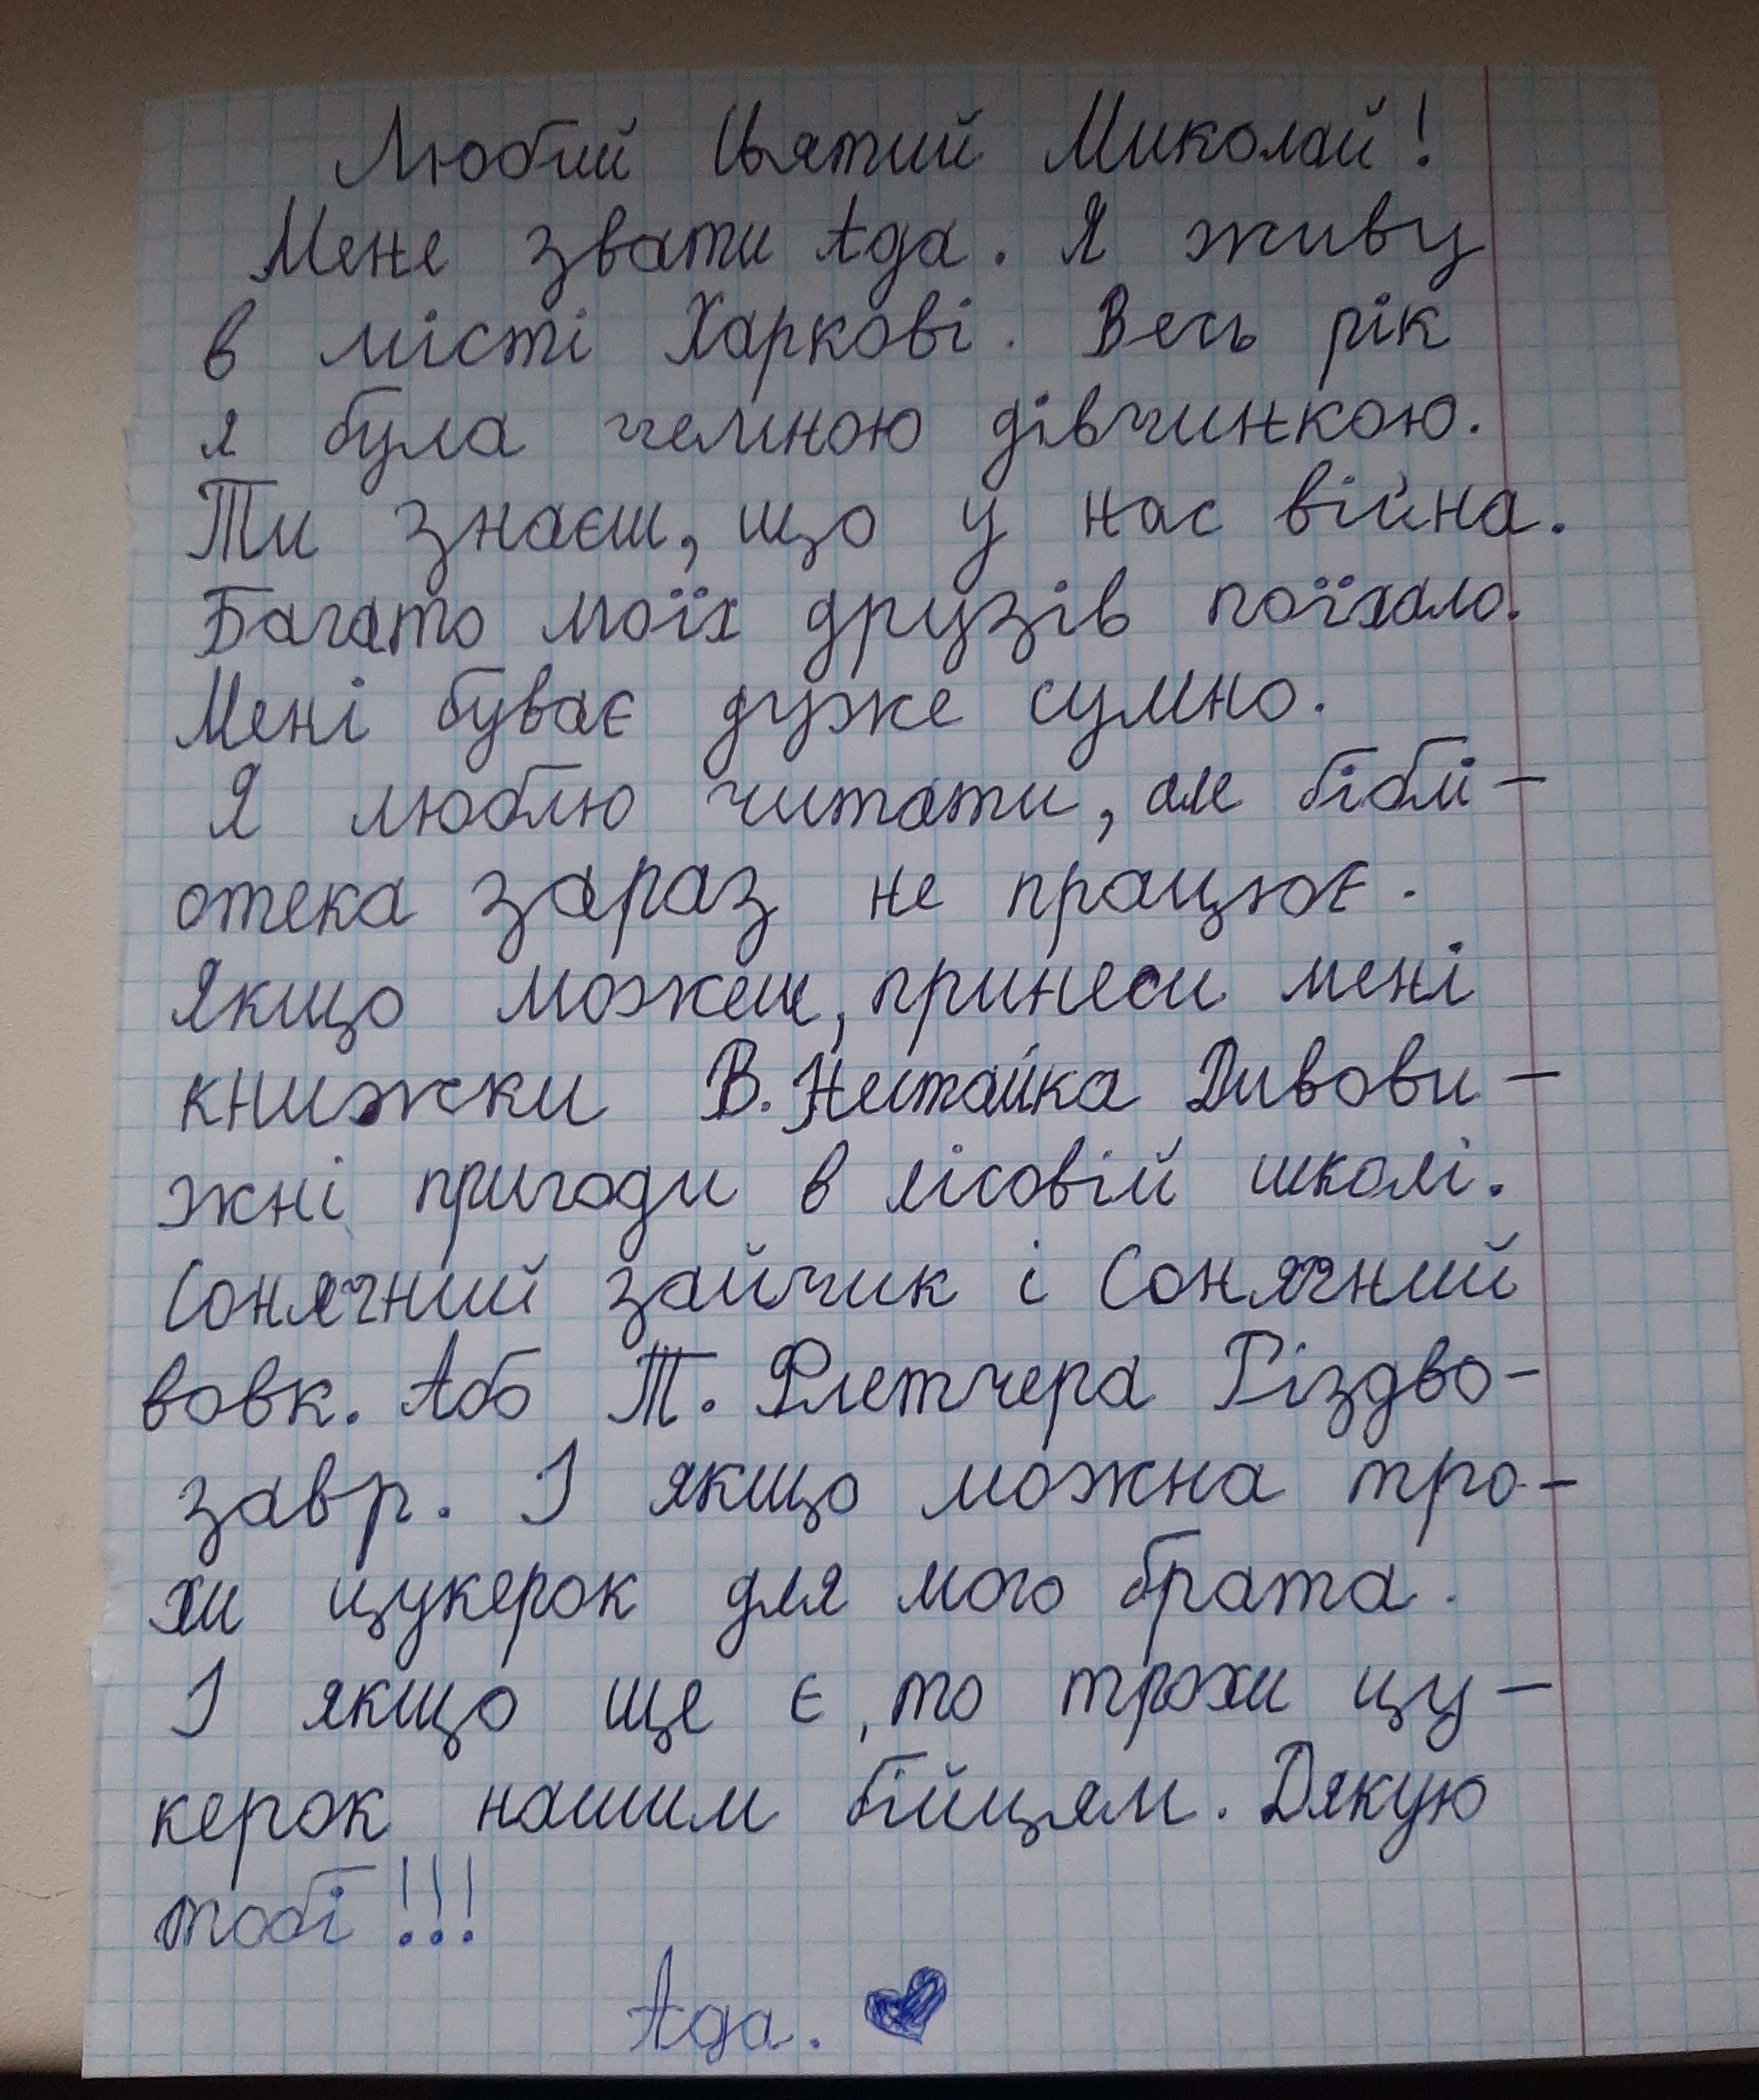 Любий Святий Миколай!
Мене звати Ада. Я живу
в місті Харкові. Весь рік
я була чемною дівчинкою.
Ти знаєш, що у нас війна.
Багато моїх друзів поїхало.
Мені буває дуже сумно.
Я люблю читати, але біблі-
отека зараз не працює.
Якщо можеш, принеси мені
книжки В. Нестайка Дивови-
жні пригоди в лісовій школі.
Сонячний зайчик і Сонячний
вовк. Або Т. Флетчера Різдво-
завр. І якщо можна тро-
хи цукерок для мого брата.
І якщо ще є, то трохи цу-
керок нашим бійцям. Дякую
тобі!!!
Ада.